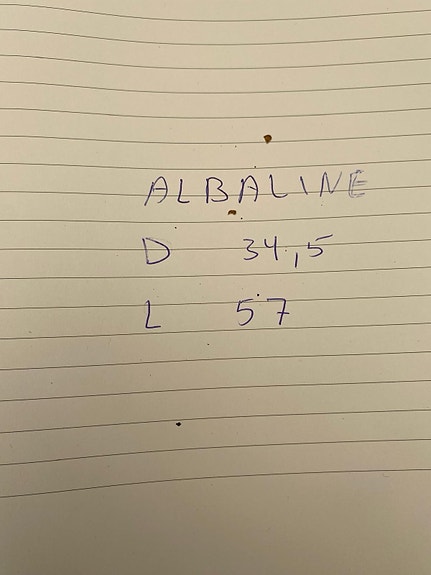 ALBALINE
D 34,5
L 57